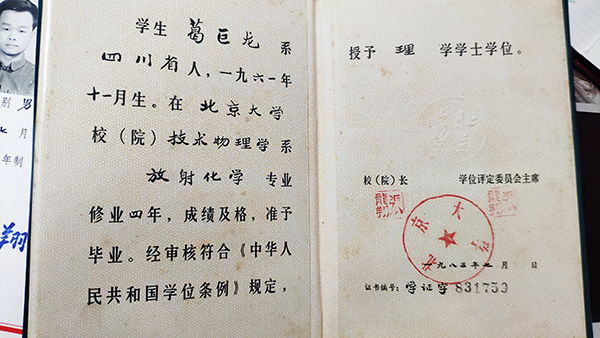 别 男
七 月
年制
翔
学生 葛巨龙 系
四川省人，一九六一年
十一月生。在 北京大学
校（院）技术物理学系
放射化学 专业
修业四年，成绩及格，准予
毕业。经审核符合《中华人
民共和国学位条例》规定，
授予 理 学学士学位。
校（院）长 学位评定委员会主席
北京大学
一九八三年七月 日
证书编号：学证字 831759